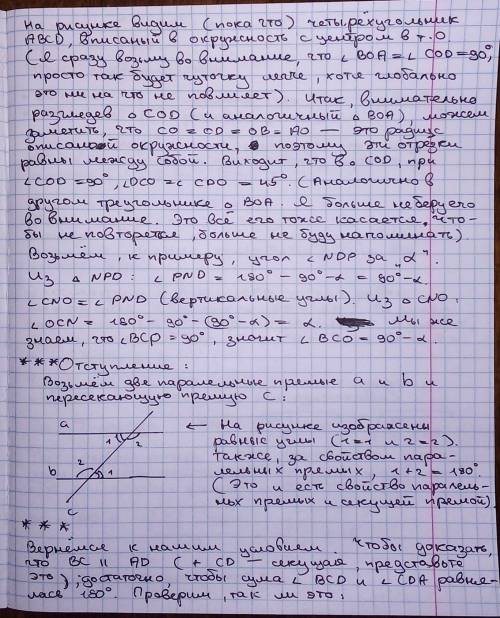 На рисунке видим (пока что) четырёхугольник
ABCD, вписаный в окружность с центром в т.О.
(Я сразу возьму во внимание, что ∠BOA=∠COD=90°,
просто так будет чуточку легче, хотя глобально
это ни на что не повлияет). Итак, внимательно
разглядев △ COD (и аналогичный △ BOA), можем
заметить, что CO = OD = OB = AO — это радиус
описаной окружности, поэтому эти отрезки
равны между собой. Выходит, что в △ COD, при
∠COD=90°, ∠DCO = ∠ CDO = 45°. (Аналогично в
другом треугольнике △ BOA. Я больше не беру его
во внимание. Это всё его тоже касается, что-
бы не повторятся, больше не буду напоминать).
Возьмём, к примеру, угол ∠NDP за "α".
Из △ NPD: ∠ PND = 180° - 90° - α = 90° - α.
∠CNO = ∠ PND (вертикальные углы). Из △ CNO:
∠ OCN = 180° - 90° - (90° - α) = α. Мы же
знаем, что ∠BCP = 90°, значит ∠ BCO = 90° - α.
***Отступление:
Возьмём две паралельные прямые a и b и
пересекающую прямую c:
a
1 2
b
2 1
c
← На рисунке изображены
равные углы (1=1 и 2=2).
Также, за свойством пара-
лельных прямых, 1+2 = 180°
(Это и есть свойство паралель-
ных прямых и секущей прямой).
***
Вернёмся к нашим условием. Чтобы доказать,
что BC || AD (+ CD — секущая, представьте
это), достаточно, чтобы сума ∠ BCD и ∠ CDA равня-
лась 180°. Проверим, так ли это: